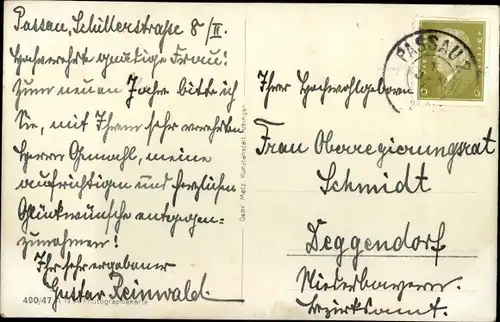 Passau, Schüllerstraße 8/II.
Hochverehrte gnädige Frau!
Zum neuen Jahre bitte ich
Sie, mit Ihrem sehr verehrten
Herrn Gemahl, meine
aufrichtigen und herzlichen
Glückwünsche entgegen-
zunehmen!
Ihr sehr ergebener
Gustav Reinwald.
400/47
Photographiekarte
Gebr. Metz, Kunstanstalt, Tübingen
PASSAU 2
6 6
Ihrer Hochwohlgeboren
Frau Oberregierungsrat
Schmidt
Deggendorf
Niederbayern.
Bezirksamt.